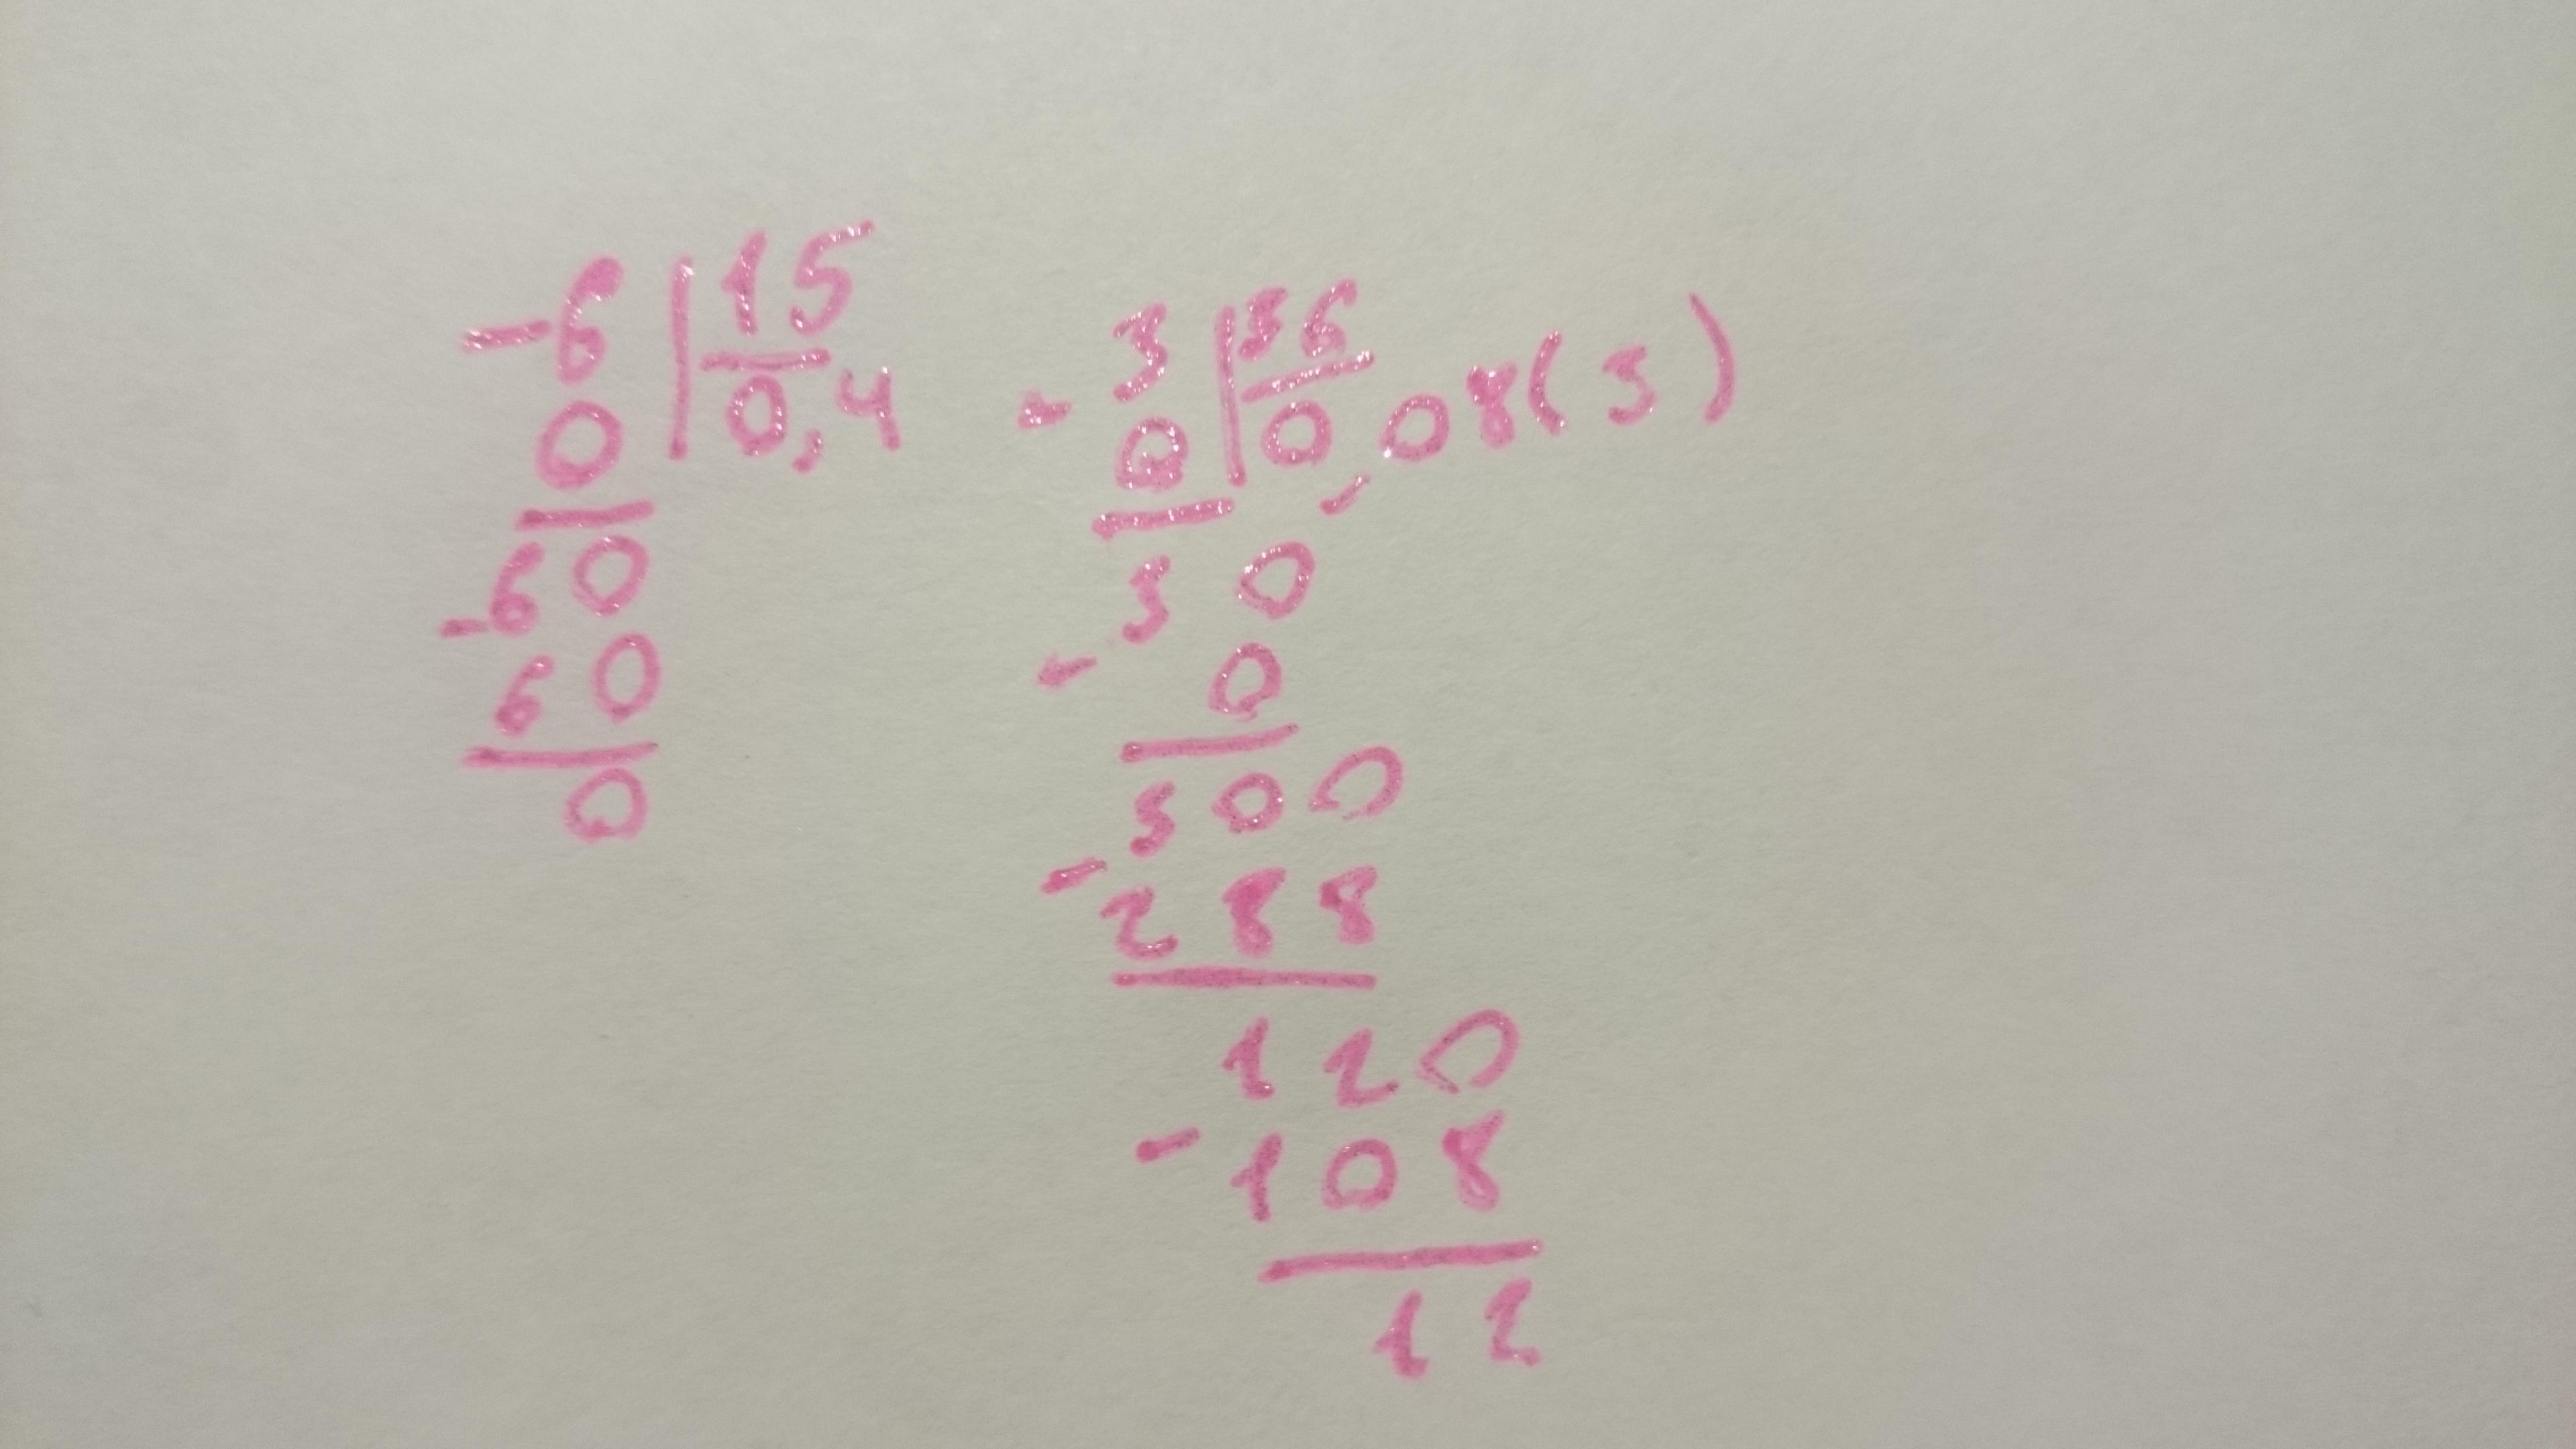 -6 | 15
0 | 0,4
-60
60
0
- 3 | 36
0 | 0,08(3)
30
- 0
300
- 288
120
- 108
12